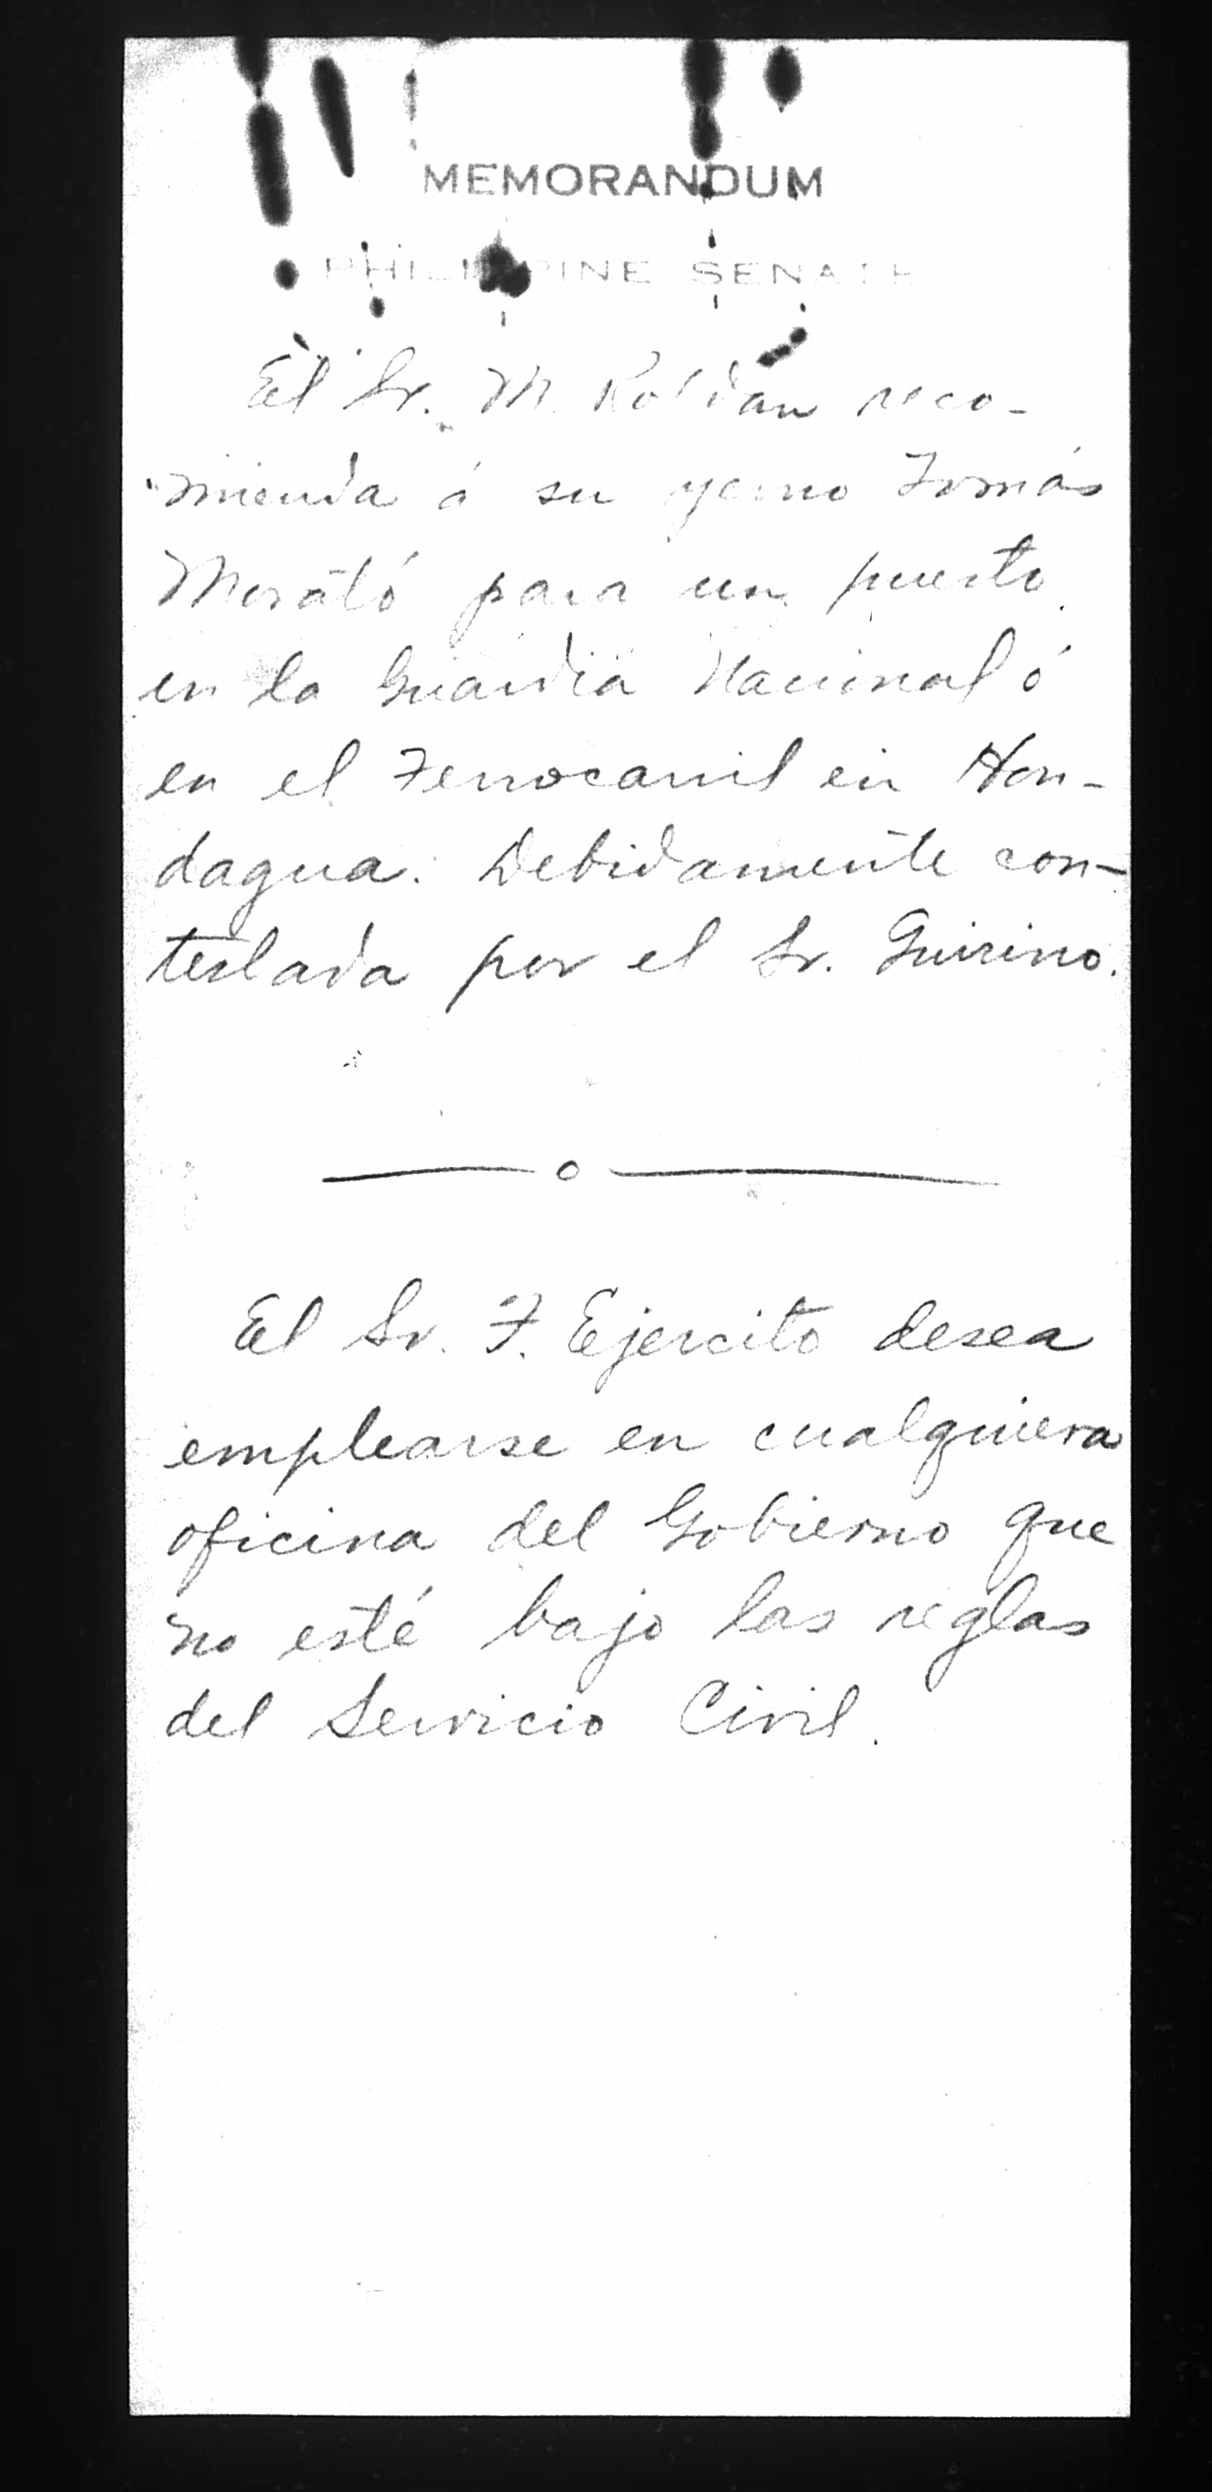 MEMORANDUM
PHILIPPINE SENATE
El Sr. M. Roldan reco-
mienda á su yerno Tomás
Morató para un puesto
en la Guardia Nacional ó
en el Ferrocarril en Hon-
dagua. Debidamente con-
testada por el Sr. Guirino.
o
El Sr. F. Ejercito desea
emplearse en cualquiera
oficina del Gobierno que
no esté bajo las reglas
del Servicio Civil.